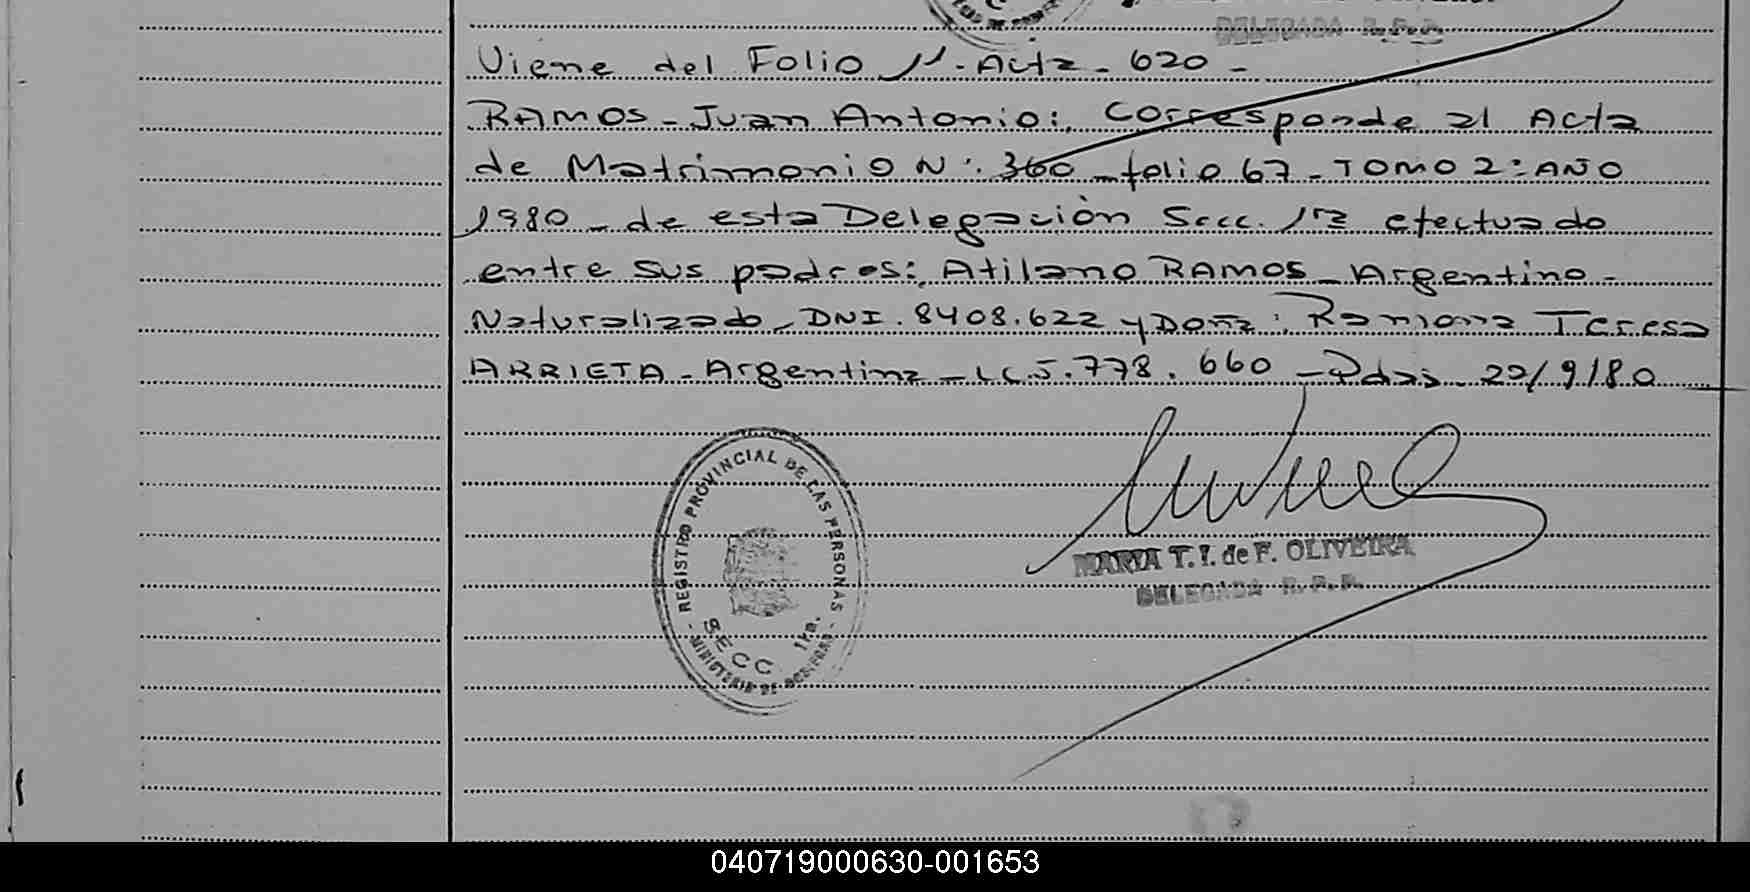 DELEGADA R.P.P.
Viene del Folio 11. Acta - 620 -
RAMOS - Juan Antonio: Corresponde al Acta
de Matrimonio N: 360 - folio 67 - TOMO 2: AÑO
1980 - de esta Delegación Secc. 1ra efectuado
entre sus padres: Atilano RAMOS - Argentino -
Naturalizado, DNI. 8408.622 y Doña: Ramona Teresa
ARRIETA - Argentina - LC 5.778.660 - Pdas. 22/9/80
REGISTRO PROVINCIAL DE LAS PERSONAS
SECC 1ra.
- MINISTERIO DE GOBIERNO -
MARIA T. I. de F. OLIVEIRA
DELEGADA R.P.P.
040719000630-001653